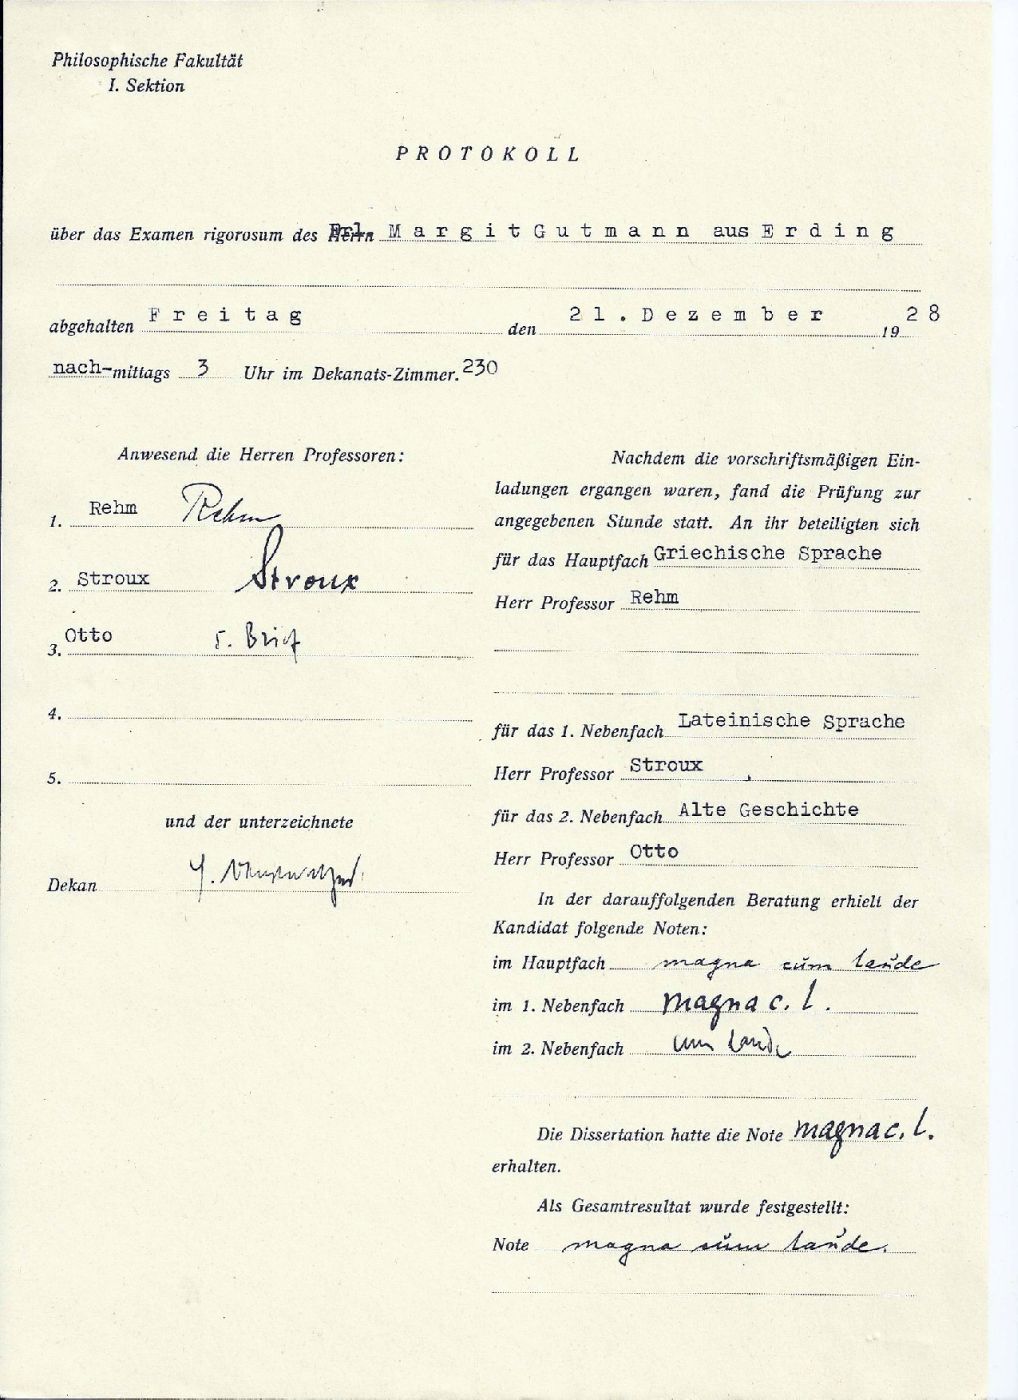 Philosophische Fakultät
I. Sektion
PROTOKOLL
über das Examen rigorosum des Frl. Margit Gutmann aus Erding
abgehalten Freitag den 21. Dezember 1928
nach-mittags 3 Uhr im Dekanats-Zimmer. 230
Anwesend die Herren Professoren:
1. Rehm Rehm
2. Stroux Stroux
3. Otto s. Brief
4.
5.
und der unterzeichnete
Dekan
Nachdem die vorschriftsmäßigen Ein-
ladungen ergangen waren, fand die Prüfung zur
angegebenen Stunde statt. An ihr beteiligten sich
für das Hauptfach Griechische Sprache
Herr Professor Rehm
für das 1. Nebenfach Lateinische Sprache
Herr Professor Stroux
für das 2. Nebenfach Alte Geschichte
Herr Professor Otto
In der darauffolgenden Beratung erhielt der
Kandidat folgende Noten:
im Hauptfach magna cum laude
im 1. Nebenfach magna c. l.
im 2. Nebenfach cum laude
Die Dissertation hatte die Note magna c. l.
erhalten.
Als Gesamtresultat wurde festgestellt:
Note magna cum laude.